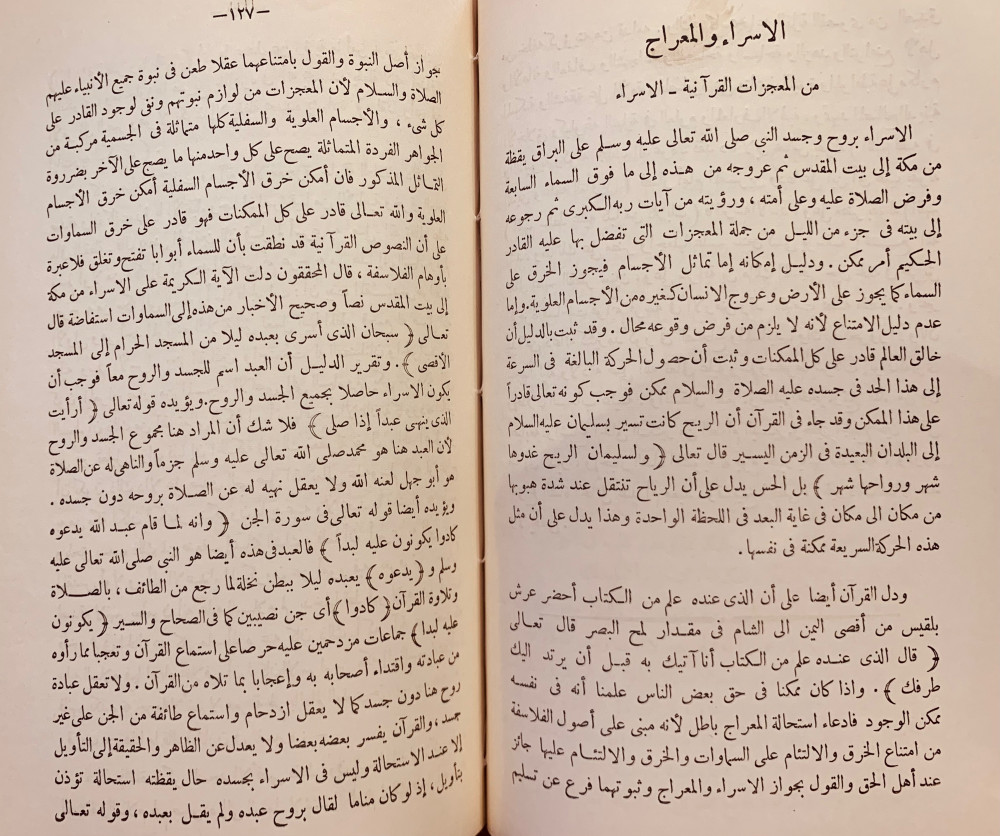 الاسراء والمعراج
من المعجزات القرآنية ـ الاسراء
الاسراء بروح وجسد النبي صلى الله تعالى عليه وسلم على البراق يقظة
من مكة إلى بيت المقدس ثم عروجه من هذه إلى ما فوق السماء السابعة
وفرض الصلاة عليه وعلى أمته ، ورؤيته من آيات ربه الكبرى ثم رجوعه
إلى بيته فى جزء من الليل من جملة المعجزات التى تفضل بها عليه القادر
الحكيم أمر ممكن . ودليل إمكانه إما تماثل الأجسام فيجوز الخرق على
السماء كما يجوز على الأرض وعروج الانسان كغيره من الأجسام العلوية . وإما
عدم دليل الامتناع لأنه لا يلزم من فرض وقوعه محال . وقد ثبت بالدليل أن
خالق العالم قادر على كل الممكنات وثبت أن حصول الحركة البالغة فى السرعة
إلى هذا الحد فى جسده عليه الصلاة والسلام ممكن فوجب كونه تعالى قادراً
على هذا الممكن وقد جاء فى القرآن أن الريح كانت تسير بسليمان عليه السلام
إلى البلدان البعيدة فى الزمن اليسير قال تعالى ﴿ ولسليمان الريح غدوها
شهر ورواحها شهر ﴾ بل الحس يدل على أن الرياح تنتقل عند شدة هبوبها
من مكان الى مكان فى غاية البعد فى اللحظة الواحدة وهذا يدل على أن مثل
هذه الحركة السريعة ممكنة فى نفسها .
ودل القرآن أيضا على أن الذى عنده علم من الكتاب أحضر عرش
بلقيس من أقصى اليمن الى الشام فى مقدار لمح البصر قال تعالى
﴿ قال الذى عنده علم من الكتاب أنا آتيك به قبل أن يرتد اليك
طرفك ﴾ . واذا كان ممكنا فى حق بعض الناس علمنا أنه فى نفسه
ممكن الوجود فادعاء استحالة المعراج باطل لأنه مبنى على أصول الفلاسفة
من امتناع الخرق والالتئام على السماوات والخرق والالتئام عليها جائز
عند أهل الحق والقول بجواز الاسراء والمعراج وثبوتهما فرع عن تسليم
—١٢٧—
بجواز أصل النبوة والقول بامتناعهما عقلا طعن فى نبوة جميع الأنبياء عليهم
الصلاة والسلام لأن المعجزات من لوازم نبوتهم ونفى لوجود القادر على
كل شىء ، والأجسام العلوية والسفلية كلها متماثلة فى الجسمية مركبة من
الجواهر الفردة المتماثلة يصح على كل واحد منها ما يصح على الآخر بضرورة
التماثل المذكور فان أمكن خرق الأجسام السفلية أمكن خرق الأجسام
العلوية والله تعالى قادر على كل الممكنات فهو قادر على خرق السماوات
على أن النصوص القرآنية قد نطقت بأن للسماء أبوابا تفتح وتغلق فلا عبرة
بأوهام الفلاسفة ، قال المحققون دلت الآية الكريمة على الاسراء من مكة
إلى بيت المقدس نصاً وصحيح الأخبار من هذه إلى السماوات استفاضة قال
تعالى ﴿ سبحان الذى أسرى بعبده ليلا من المسجد الحرام إلى المسجد
الأقصى ﴾ . وتقرير الدليل أن العبد اسم للجسد والروح معاً فوجب أن
يكون الاسراء حاصلا بجميع الجسد والروح . ويؤيده قوله تعالى ﴿ أرأيت
الذى ينهى عبداً إذا صلى ﴾ فلا شك أن المراد هنا مجموع الجسد والروح
لأن العبد هنا هو محمد صلى الله تعالى عليه وسلم جزماً والناهى له عن الصلاة
هو أبو جهل لعنه الله ولا يعقل نهيه له عن الصلاة بروحه دون جسده .
ويؤيده أيضا قوله تعالى فى سورة الجن ﴿ وانه لما قام عبد الله يدعوه
كادوا يكونون عليه لبدا ﴾ فالعبد فى هذه أيضا هو النبي صلى الله تعالى عليه
وسلم و ﴿ يدعوه ﴾ يعبده ليلا ببطن نخلة لما رجع من الطائف ، بالصلاة
وتلاوة القرآن ﴿ كادوا ﴾ أى جن نصيبين كما فى الصحاح والسير ﴿ يكونون
عليه لبدا ﴾ جماعات مزدحمين عليه حرصا على استماع القرآن وتعجبا مما رأوه
من عبادته واقتداء أصحابه به وإعجابا بما تلاه من القرآن . ولا تعقل عبادة
روح هنا دون جسد كما لا يعقل ازدحام واستماع طائفة من الجن على غير
جسد ، والقرآن يفسر بعضه بعضا ولا يعدل عن الظاهر والحقيقة إلى التأويل
إلا عند الاستحالة وليس فى الاسراء بجسده حال يقظته استحالة تؤذن
بتأويل ، إذ لو كان مناما لقال بروح عبده ولم يقل بعبده ، وقوله تعالى